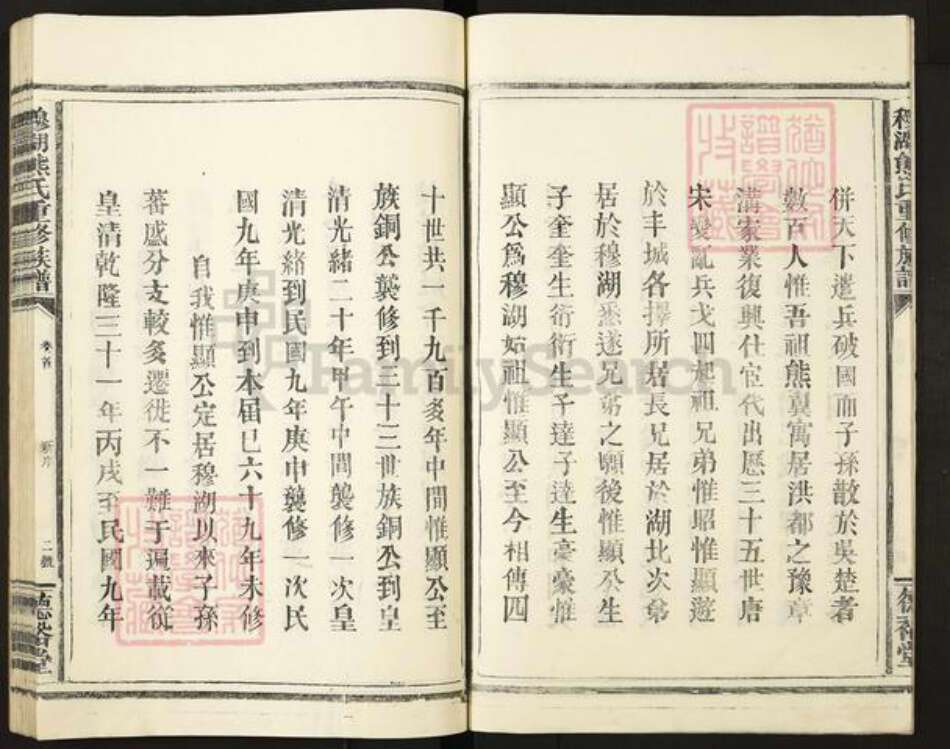 穆湖熊氏重修族譜
併天下遣兵破國而子孫散於吳楚者
數百人惟吾祖熊翼寓居洪都之豫章
溝家業復興仕宦代出歷三十五世唐
宋變亂兵戈四起祖兄弟惟昭惟顯遊
於丰城各擇所居長兄居於湖北次弟
居於穆湖悉遂兄弟之願後惟顯公生
子奎奎生衍衍生子達子達生豪豪惟
顯公爲穆湖始祖惟顯公至今相傳四
十世共一千九百多年中間惟顯公至
族銅公襲修到三十三世族銅公到皇
清光緒二十年甲午中間襲修一次皇
清光緒到民國九年庚申襲修一次民
國九年庚申到本届已六十九年未修
自我惟顯公定居穆湖以來子孫
蕃盛分支較多遷徙不一難于遍載從
皇清乾隆三十一年丙戌至民國九年
穆湖熊氏重修族譜
卷首
新序
二號
德裕堂
FamilySearch